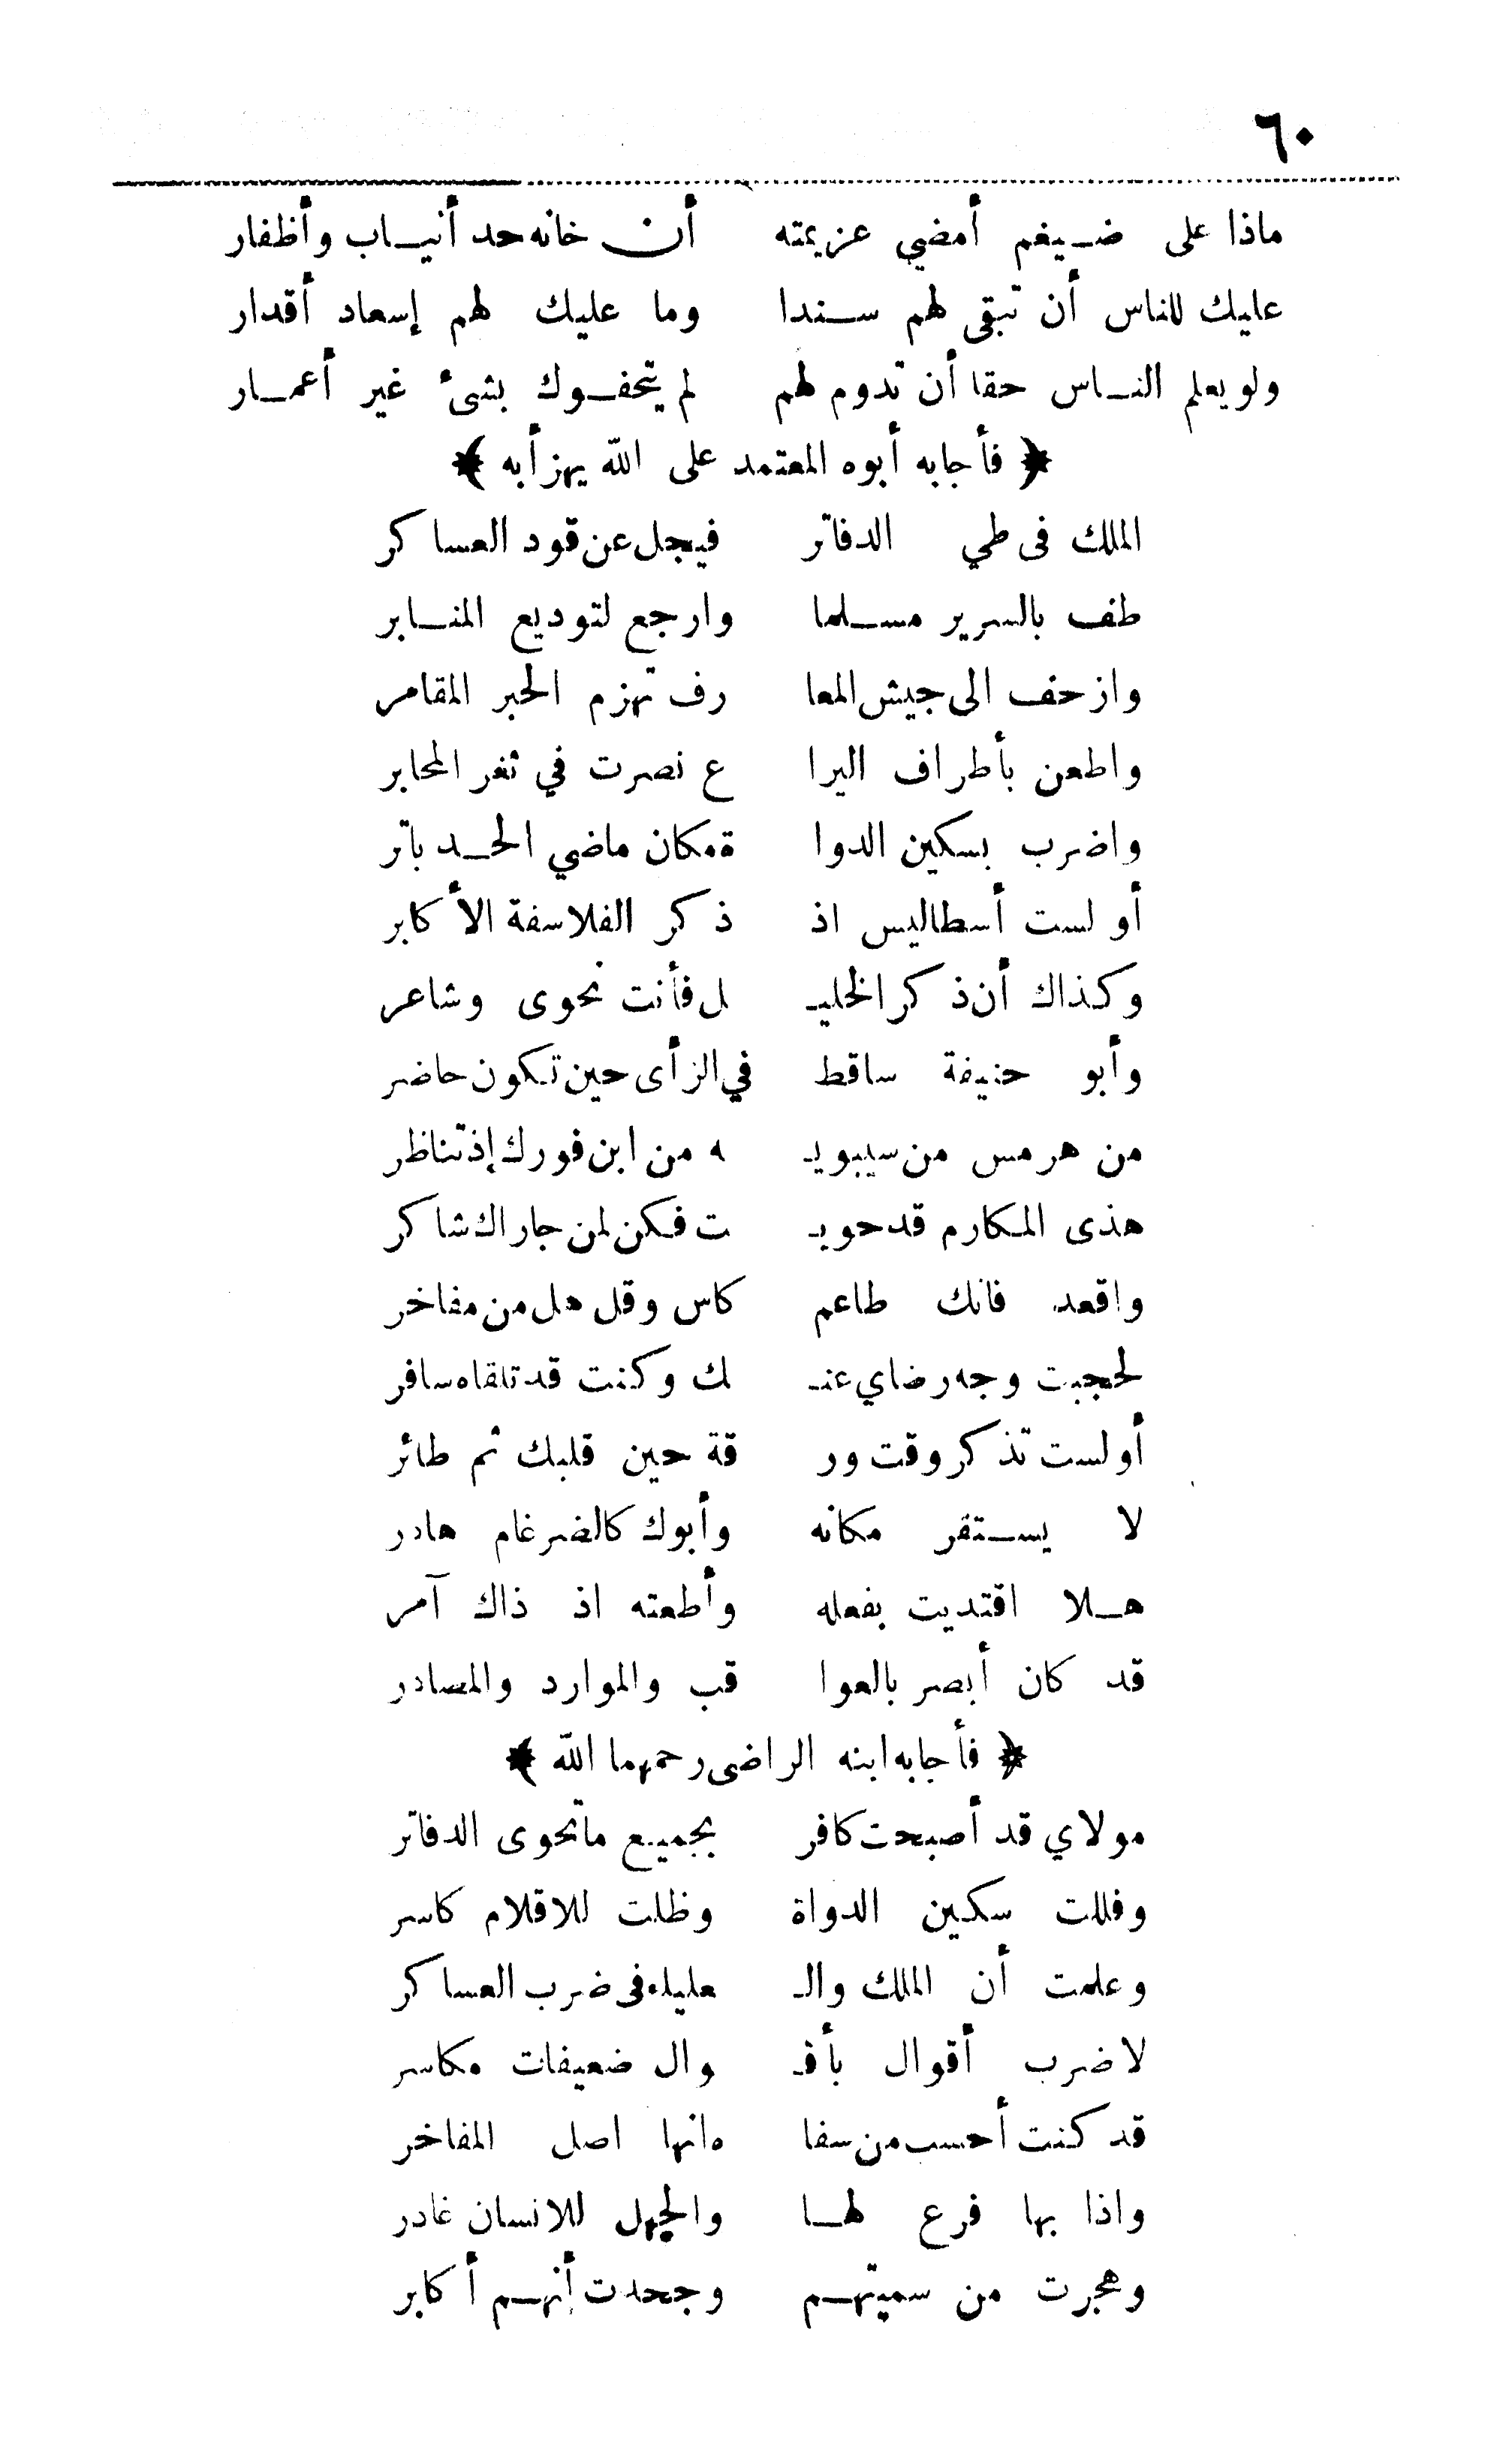 ٦٠
ماذا على ضيغم أمضي عزيمته أن خانه حد أنياب وأظفار
عليك للناس أن تبقى لهم سندا وما عليك لهم إسعاد أقدار
ولو يعلم الناس حقا أن تدوم لهم لم يتحفوك بشئ غير أعمار
﴿ فأجابه أبوه المعتمد على الله يهزأ به ﴾
الملك فى طي الدفاتر فيجل عن قود العساكر
طف بالسرير مسلما وارجع لتوديع المنابر
وازحف الى جيش المعا رف تهزم الحبر المقامر
واطعن بأطراف اليرا ع نصرت في ثغر المحابر
واضرب بسكين الدوا ة مكان ماضي الحد باتر
أو لست أسطاليس اذ ذكر الفلاسفة الأكابر
وكذاك أن ذكر الخليـ ل فأنت نحوى وشاعر
وأبو حنيفة ساقط في الرأى حين تكون حاضر
من هرمس من سيبويـ ه من ابن فورك إذ تناظر
هذى المكارم قد حويـ ت فكن لمن جاراك شاكر
واقعد فانك طاعم كاس وقل هل من مفاخر
لحجبت وجه رضاي عنـ ك وكنت قد تلقاه سافر
أولست تذكر وقت ور قة حين قلبك ثم طائر
لا يستقر مكانه وأبوك كالضرغام هادر
هلا اقتديت بفعله وأطعته اذ ذاك آمر
قد كان أبصر بالعوا قب والموارد والمصادر
﴿ فأجابه ابنه الراضى رحمهما الله ﴾
مولاي قد أصبحت كافر بجميع ما تحوى الدفاتر
وفللت سكين الدواة وظلت للاقلام كاسر
وعلمت أن الملك والـ علياء فى ضرب العساكر
لا ضرب أقوال بأقـ وال ضعيفات مكاسر
قد كنت أحسب من سفا ه انها اصل المفاخر
واذا بها فرع لها والجهل للانسان غادر
وهجرت من سميتهم وجحدت أنهم أكابر